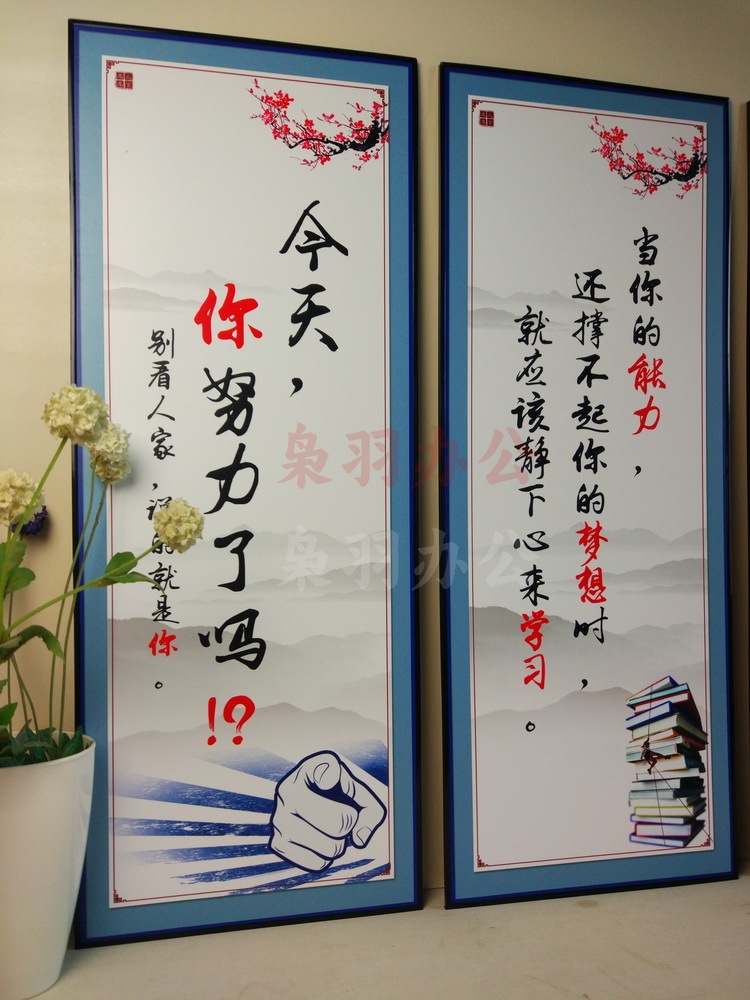 今天，
你努力了吗!?
别看人家，说的就是你。
当你的能力，
还撑不起你的梦想时，
就应该静下心来学习。
枭羽办公
枭羽办公